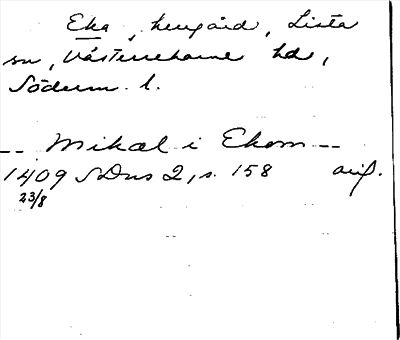 Eka, herrgård, Lista
sn, Västerrekarne hd,
Söderm. l.
-- Mikal i Ekom --
1409 SDns 2, s. 158 avs.
23/8